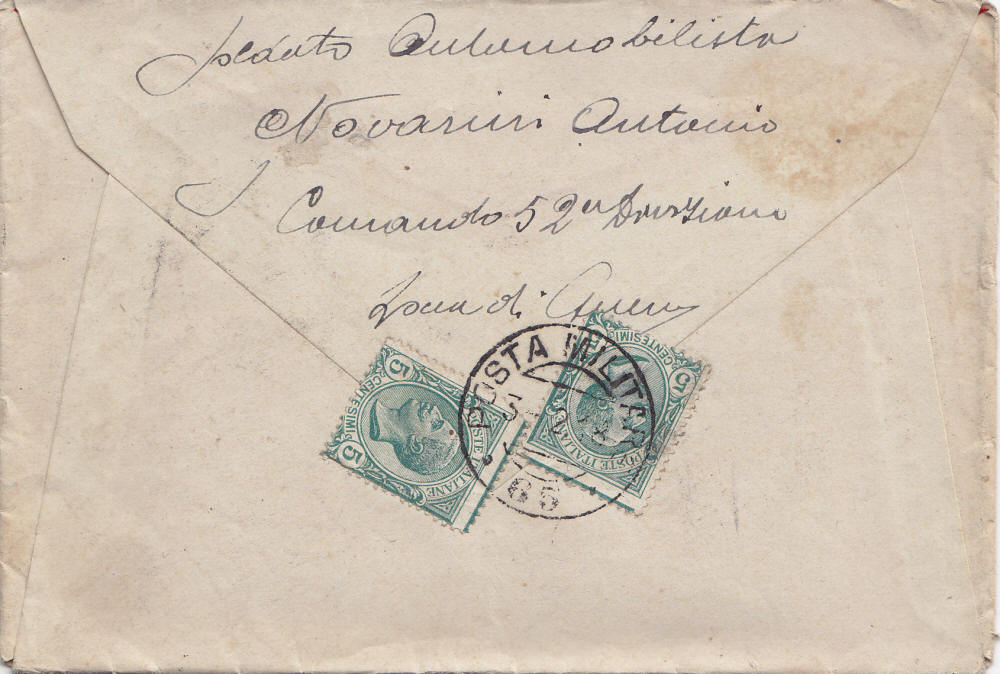 Soldato Automobilista
Novarini Antonio
Comando 52a Divisione
Zona di Guerra
5 CENTESIMI 5
POSTE ITALIANE
POSTA MILITARE
65
5 CENTESIMI
POSTE ITALIANE